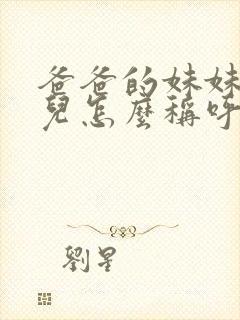 爸爸的妹妹
兒怎麼稱呼
劉星